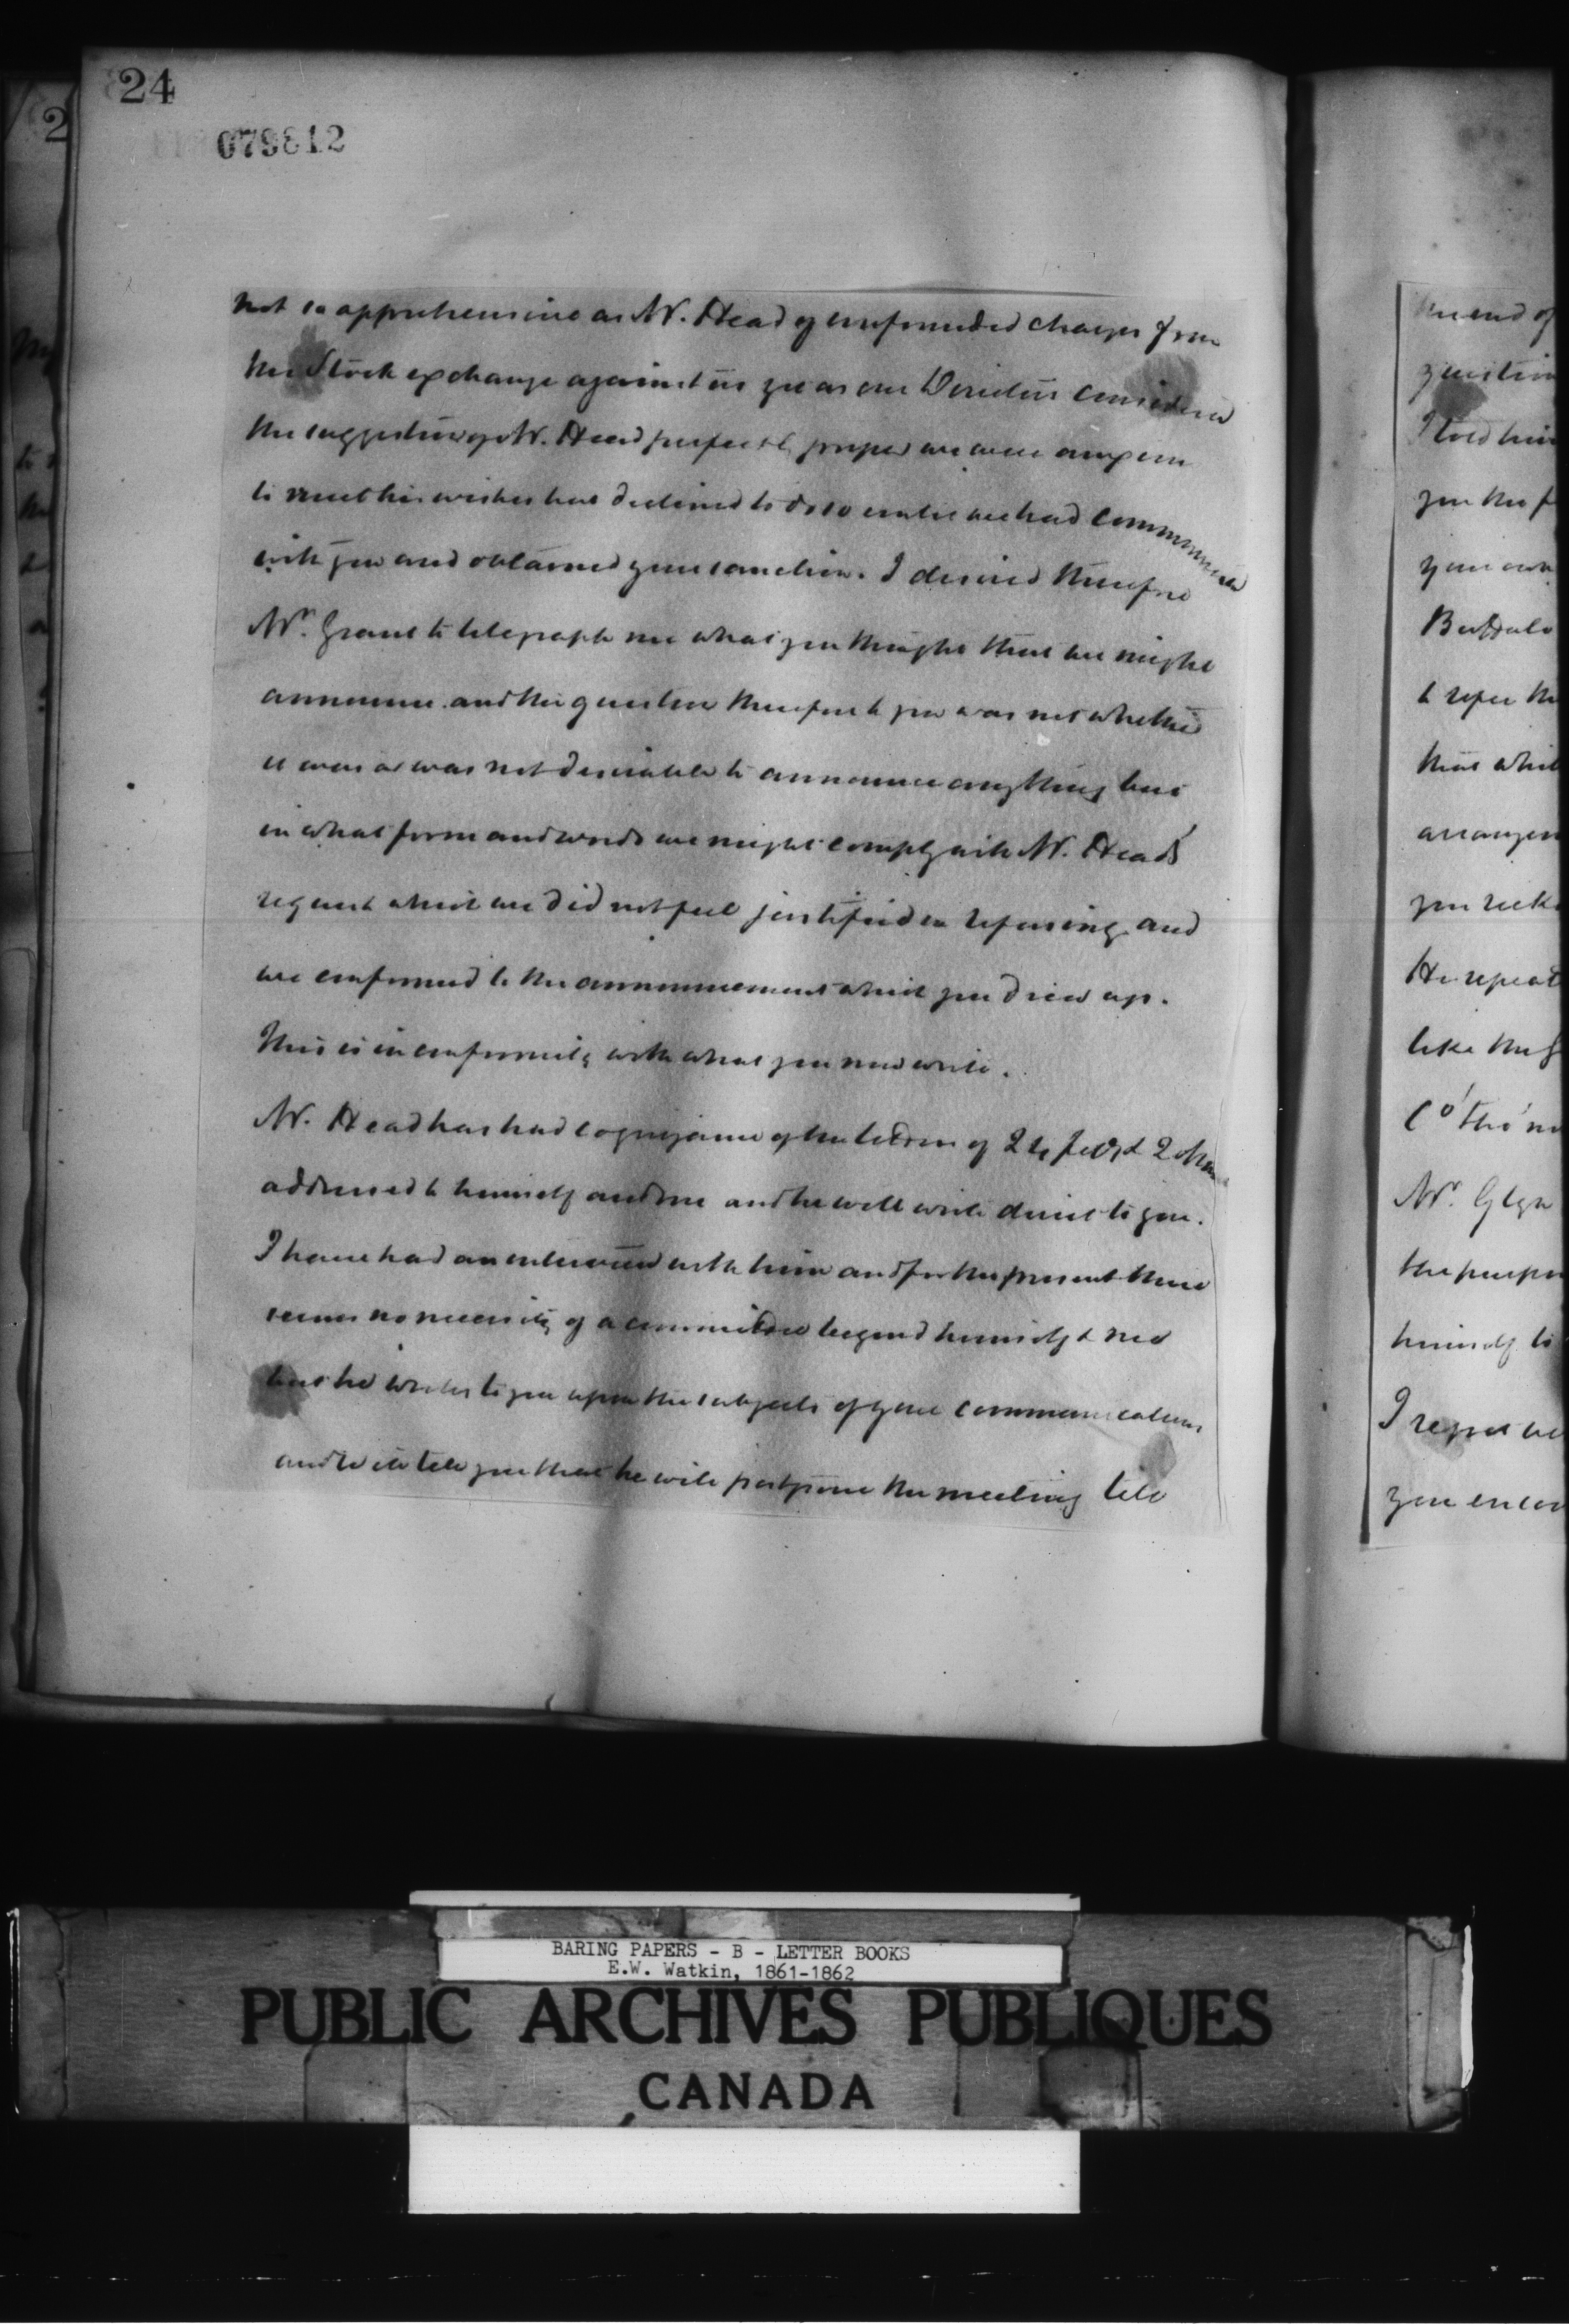 24
079812
not so apprehensive as Mr. Head of unfounded charges from
the Stock exchange against us yet as our Directors considered
the suggestion of Mr. Head perfectly proper we were anxious
to meet his wishes but declined to do so until we had communicated
with you and obtained your sanction. I desired therefore
Mr. Grant to telegraph me what you thought that we might
announce and the question therefore to you was not whether
it was or was not desirable to announce anything but
in what form and words we might comply with Mr. Head's
request which we did not feel justified in refusing and
we conformed to the announcement which you drew up.
This is in conformity with what you now write.
Mr. Head has had cognizance of the letters of 24 Feby & 2 Mar
addressed to himself and me and he will write direct to you.
I have had an interview with him and for the present there
seems no necessity of a committee beyond himself & me
but he writes to you upon the subjects of your communications
and will tell you that he will postpone the meeting till
the end of
question
I told him
you the
your own
Buffalo
to refer the
that
arrangem
you seek
He repeat
like the
Co. tho'
Mr. Glyn
the purpo
himself to
I regret
you
BARING PAPERS - B - LETTER BOOKS
E.W. Watkin, 1861-1862
PUBLIC ARCHIVES PUBLIQUES
CANADA